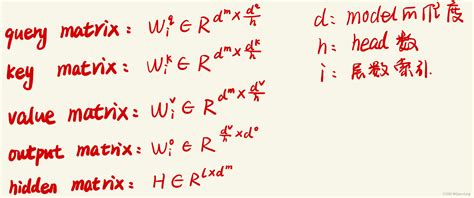 query matrix: W_i^q ∈ R^{d^m × \frac{d^q}{h}}
key matrix: W_i^k ∈ R^{d^m × \frac{d^k}{h}}
value matrix: W_i^v ∈ R^{d^m × \frac{d^v}{h}}
output matrix: W_i^o ∈ R^{\frac{d^v}{h} × d^o}
hidden matrix: H ∈ R^{l×d^m}
d: model的维度
h: head数
i: 层数索引